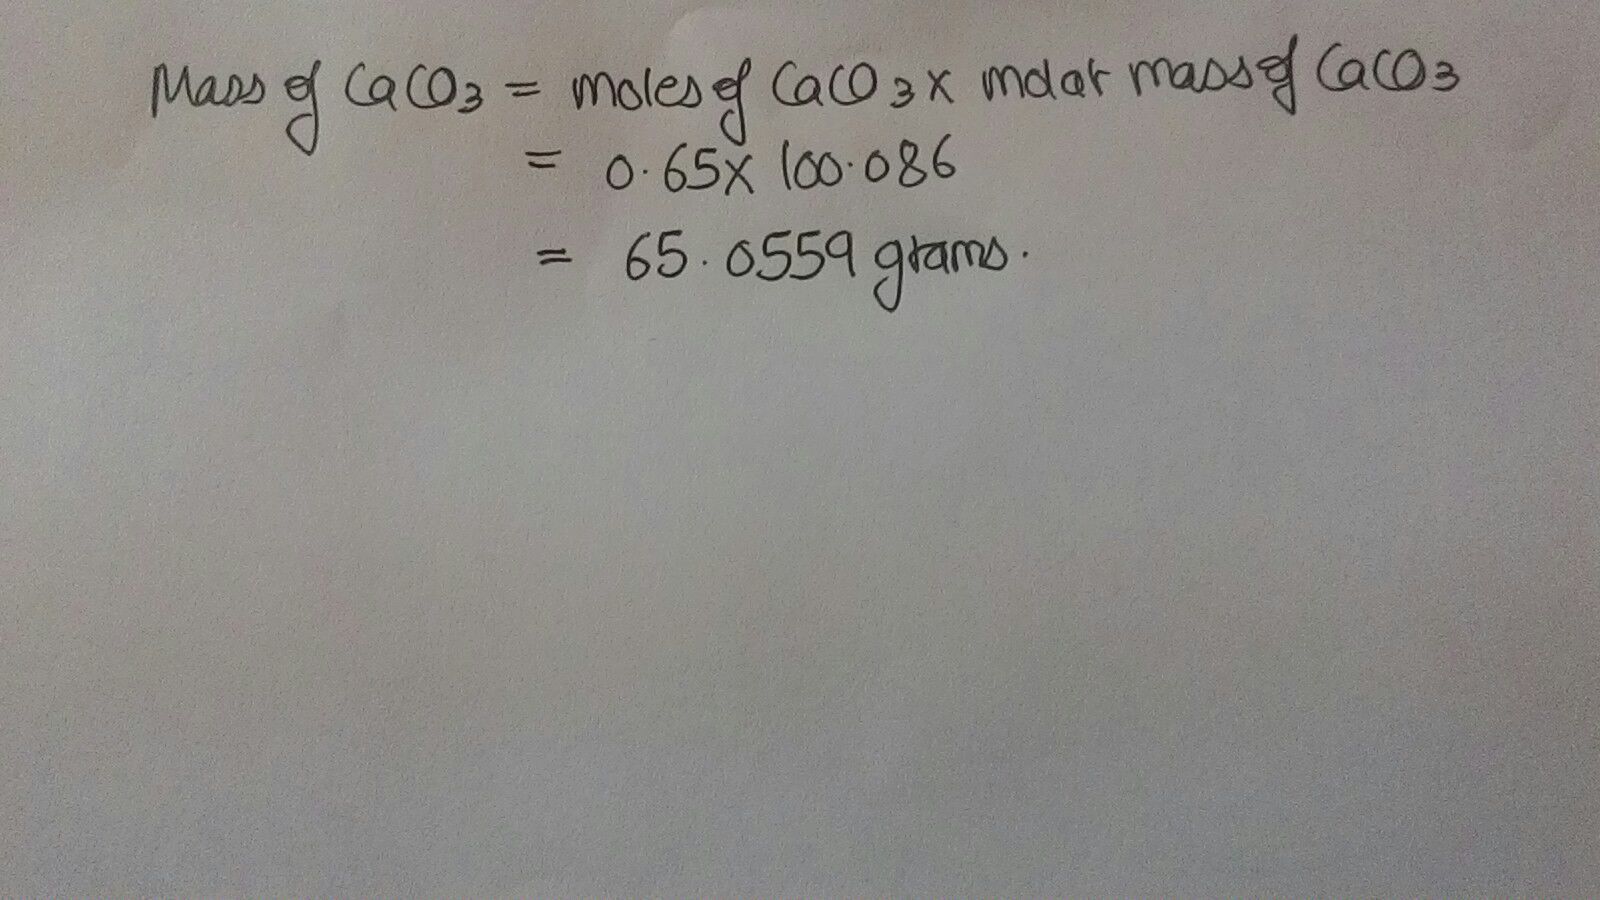 Mass of CaCO3 = moles of CaCO3 x molar mass of CaCO3
= 0.65 x 100.086
= 65.0559 grams.